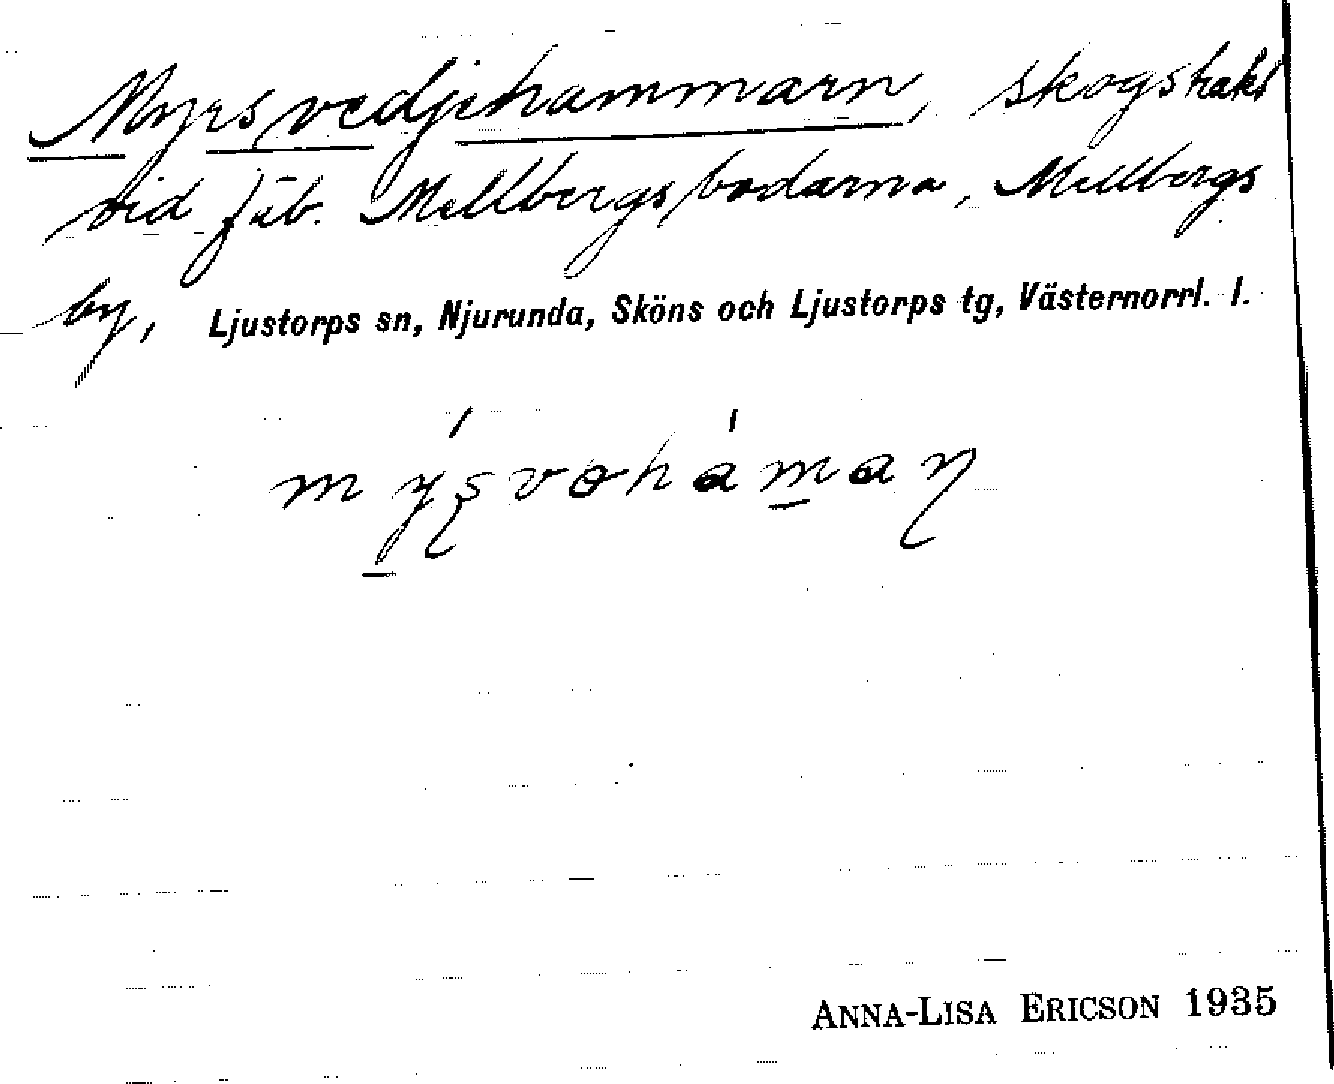 Myrsvedjehammarn, skogstrakt
vid fäb. Mellbergsbodarna, Mellbergs
by, Ljustorps sn, Njurunda, Sköns och Ljustorps tg, Västernorrl. l.
ANNA-LISA ERICSON 1935